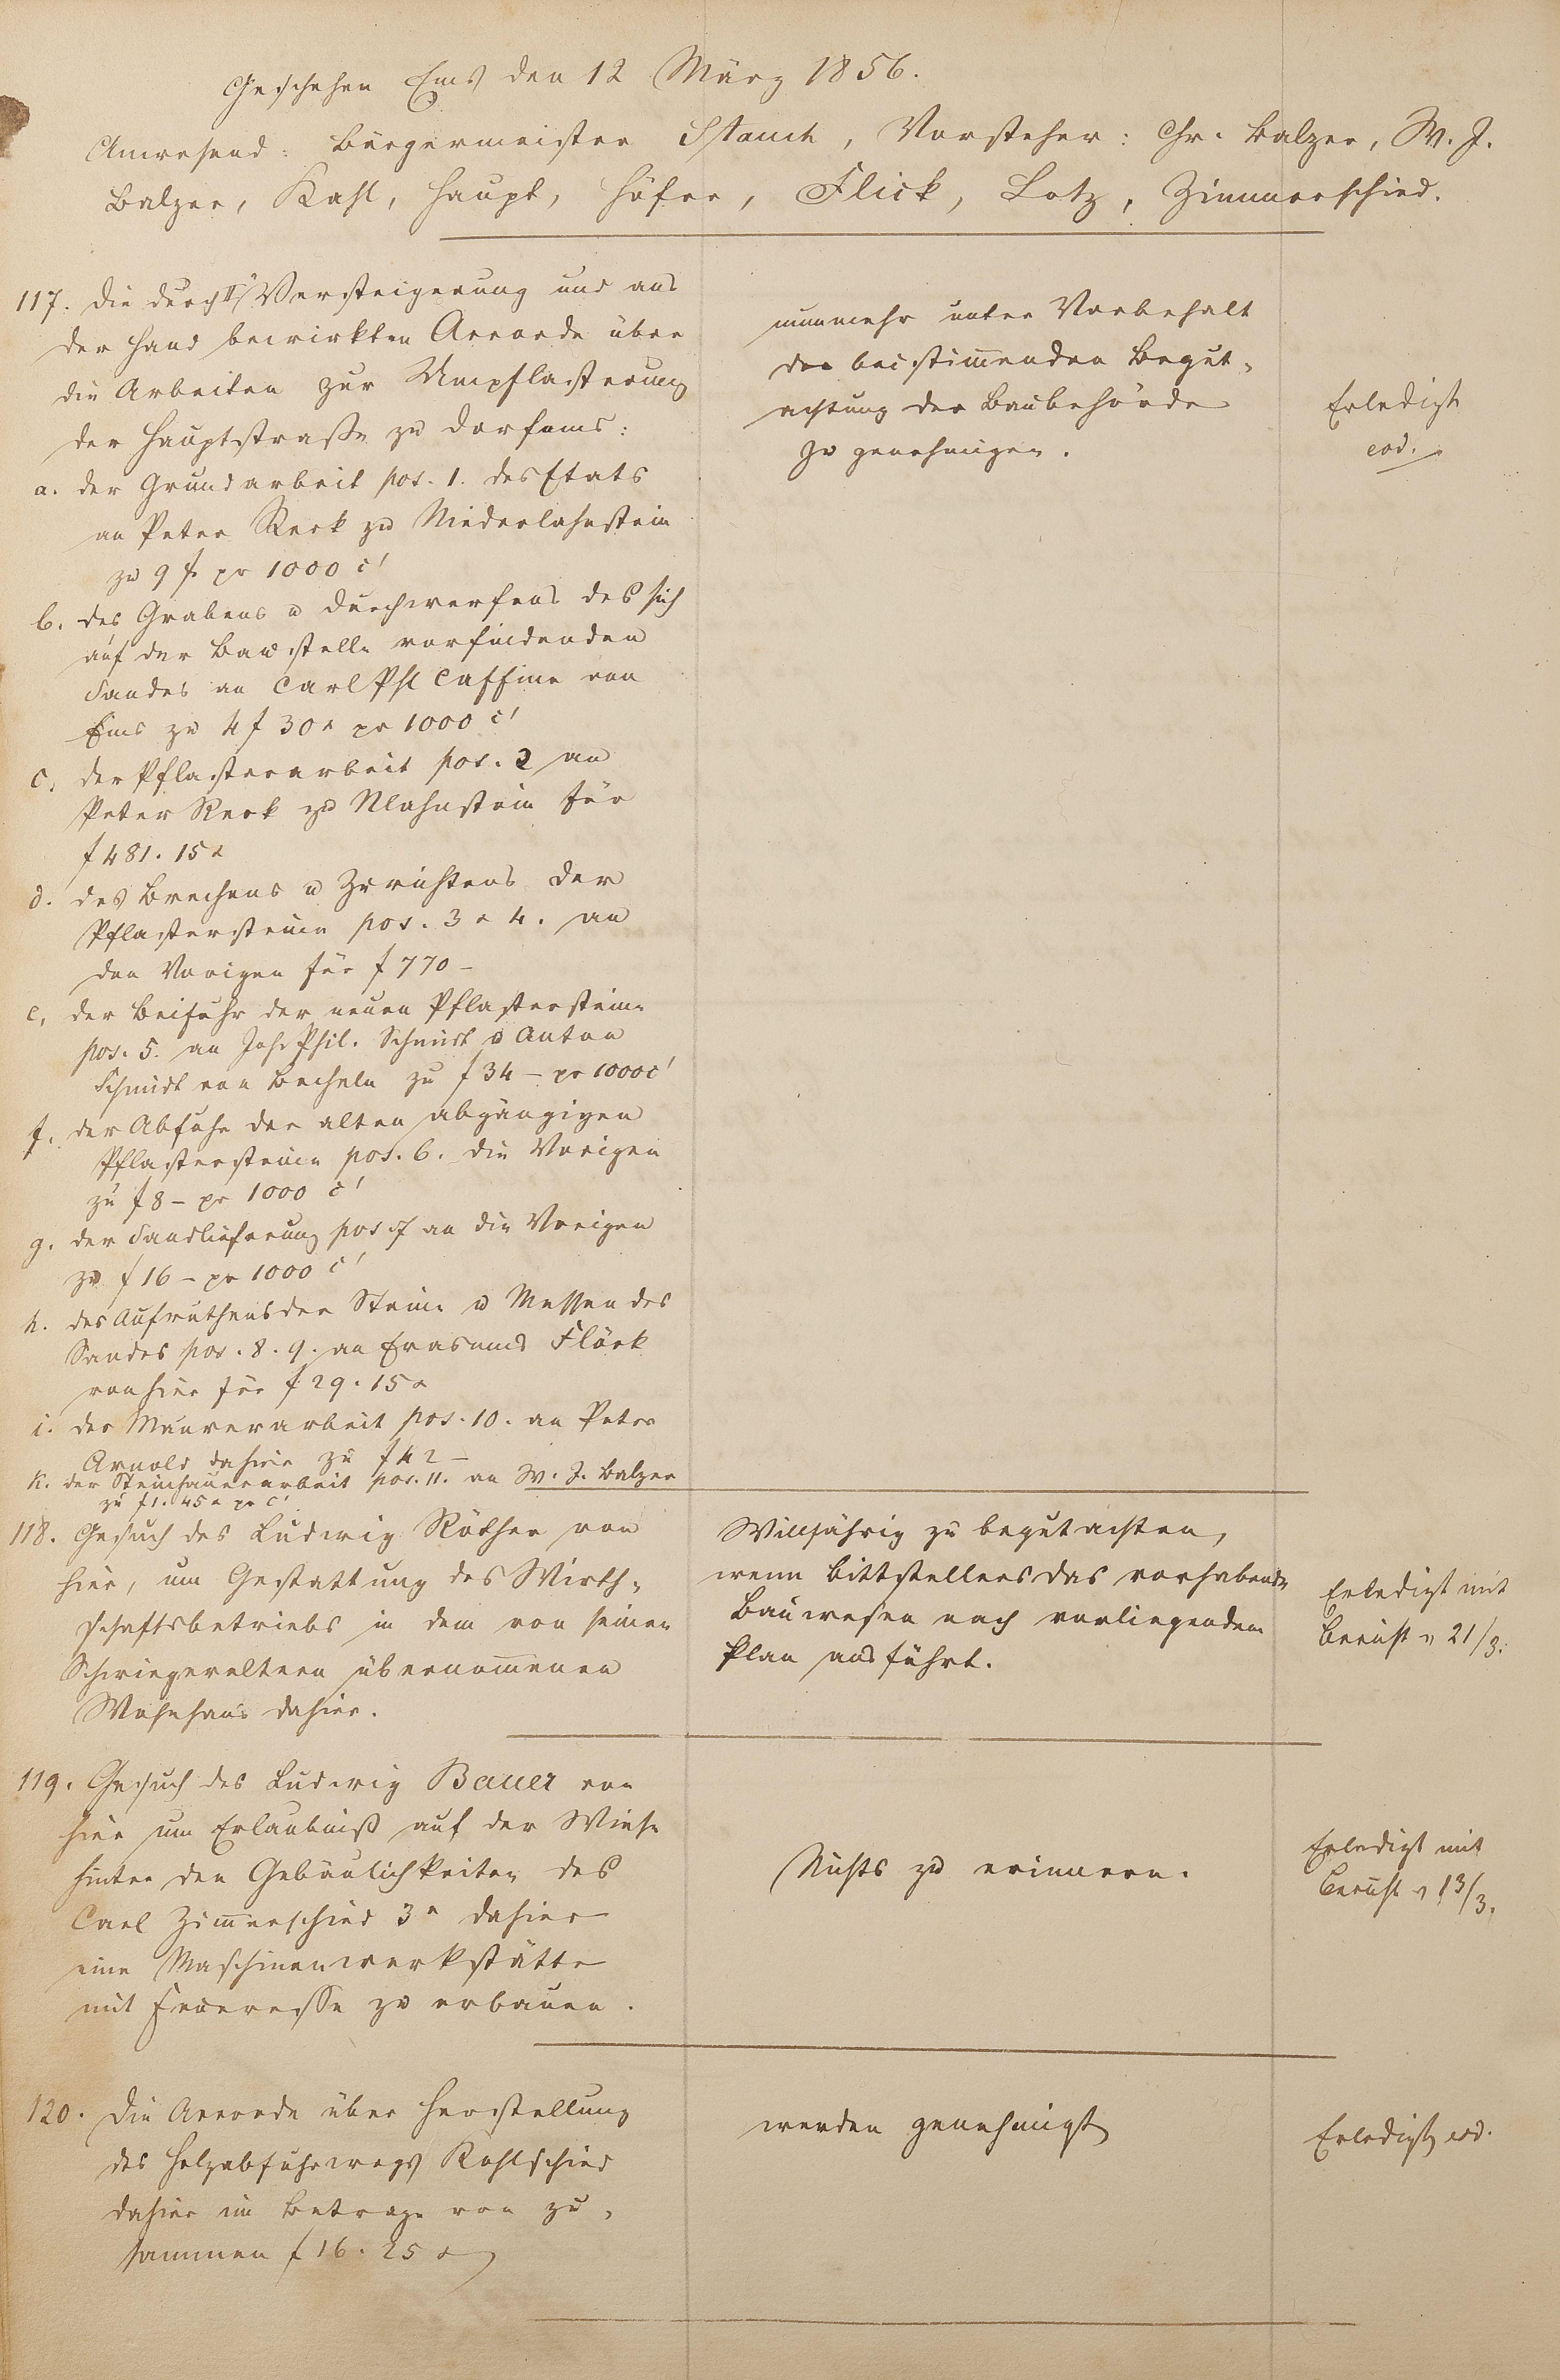 Geschehen Ems den 12 März 1856.
Anwesend: Bürgermeister Stauch, Vorsteher: Chr. Balzer, W. J.
Balzer, Kahl, Haupt, Höfer, Flick, Lotz, Zimmerschied.
117. die durch II Versteigerung und aus
der Hand bewirkten Accorde über
die Arbeiten zur Umpflasterung
der Hauptstraße zu Dorfems:
a. der Grundarbeit pos. 1. des Etats
an Peter Kerk zu Niederlahnstein
zu 9 f. pr 1000 c'
b. des Grabens u Durchwerfens des sich
auf der Baustelle vorfindenden
Sandes an Carl Phl Caffine von
Ems zu 4 f 30 x pr 1000 c'
c. der Pflasterarbeit pos. 2 an
Peter Kerk zu Nlahnstein für
f 481. 15 x
d. des Brechens u Zurichtens der
Pflastersteine pos. 3 & 4. an
den Vorigen für f 770 –
e. der Beifuhr der neuen Pflastersteine
pos. 5. an Joh. Phil. Schmidt u Anton
Schmidt von Becheln zu f 34 – pr 1000 c'
f. der Abfuhr der alten abgängigen
Pflastersteine pos. 6. die Vorigen
zu f 8 – pr 1000 c'
g. der Sandlieferung pos. 7 an die Vorigen
zu f 16 – pr 1000 c'
h. des Aufruthens der Steine u Messen des
Sandes pos. 8. 9. an Erasmus Flöck
von hier für f 29. 15 x
i. der Maurerarbeit pos. 10. an Peter
Arnold dahier zu f 42 –
k. der Steinhauerarbeit pos. 11. an W. J. Balzer
zu f 1. 45 x pr c'
nunmehr unter Vorbehalt
der beistimmenden Begut-
achtung der Baubehörde
zu genehmigen.
Erledigt
eod.
118. Gesuch des Ludwig Röther von
hier, um Gestattung des Wirth-
schaftsbetriebs in dem von seinen
Schwiegereltern übernommenen
Wohnhaus dahier.
Willfährig zu begutachten,
wenn Bittstellers das vorhabende
Bauwesen nach vorliegendem
Plan ausführt.
Erledigt mit
Bericht v 21/3.
119. Gesuch des Ludwig Bauer von
hier um Erlaubniß auf der Wiese
hinter den Gebäulichkeiten des
Carl Zimmerschied 3r dahier
eine Maschinenwerkstätte
mit Feueresse zu erbauen.
Nichts zu erinnern.
Erledigt mit
Bericht v 13/3.
120. Die Accorde über Herstellung
des Holzabfuhrwegs Kohlschied
dahier im Betrage von zu-
sammen f 16. 25 x
werden genehmigt
Erledigt eod.